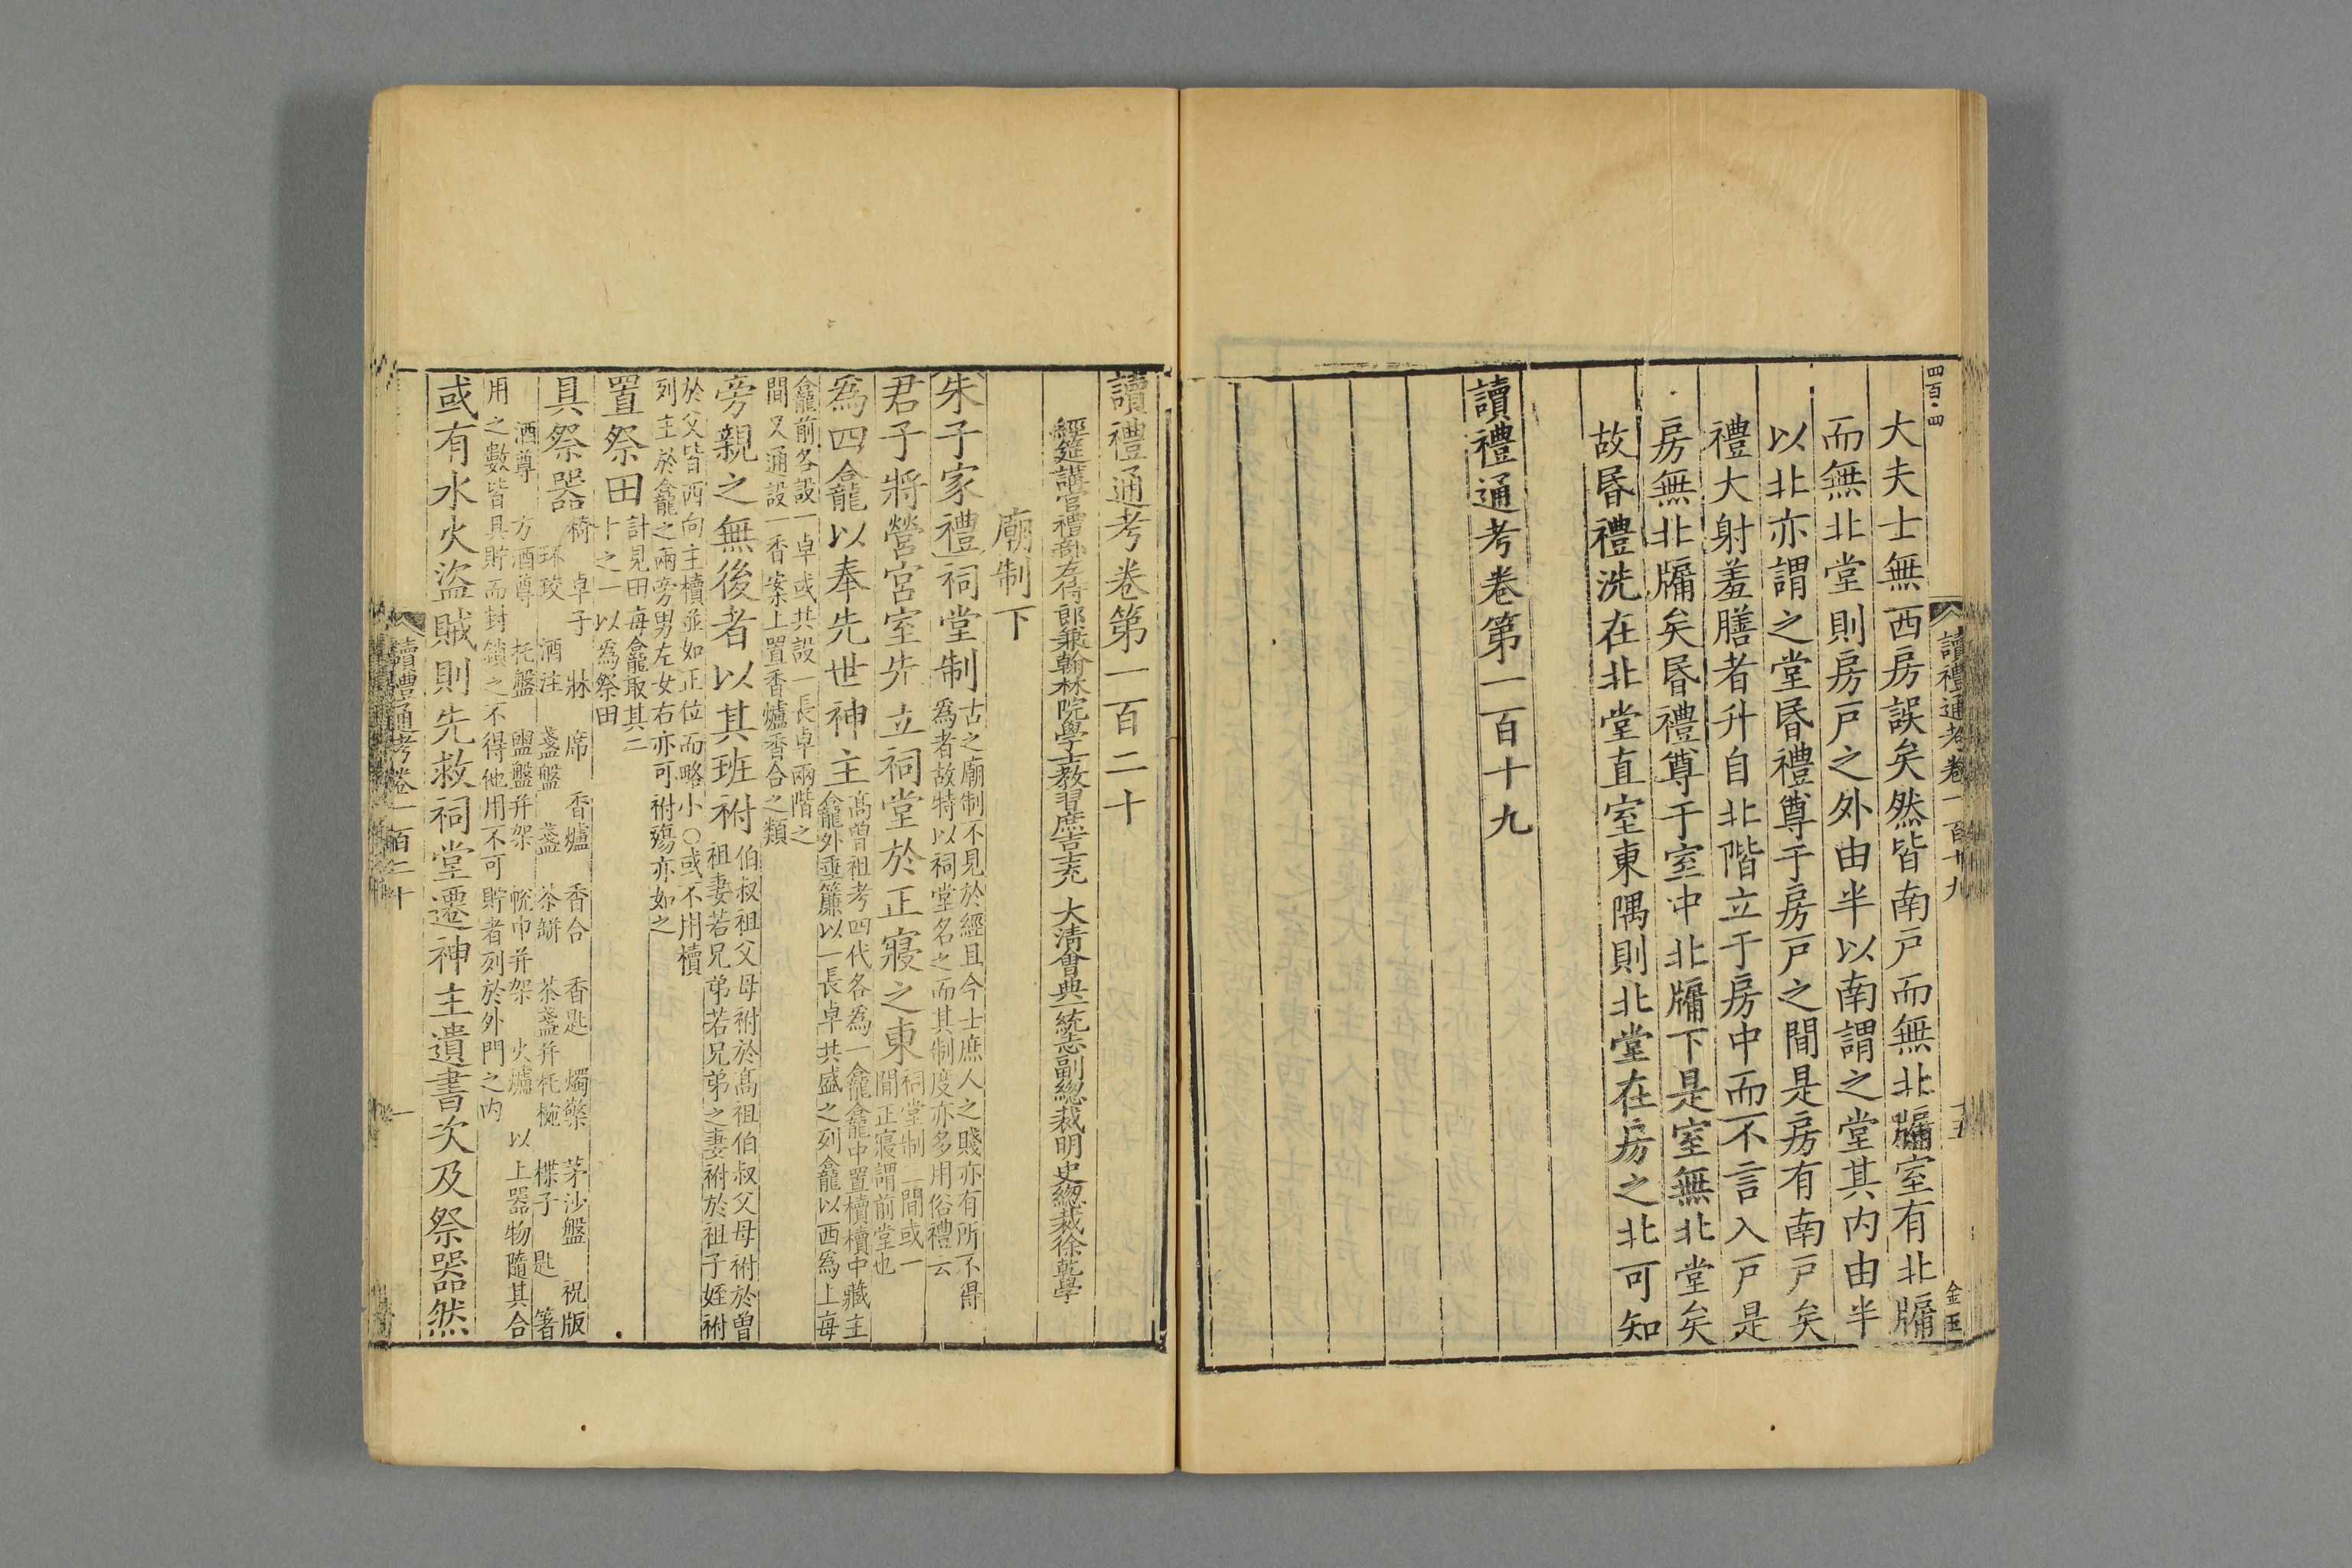 四百·四
讀禮通考卷一百十九
十五
金玉
大夫士無西房誤矣然皆南戸而無北牖室有北牖
而無北堂則房戸之外由半以南謂之堂其内由半
以北亦謂之堂昬禮尊于房戸之間是房有南戸矣
禮大射羞膳者升自北階立于房中而不言入戸是
房無北牖矣昬禮尊于室中北牖下是室無北堂矣
故昬禮洗在北堂直室東隅則北堂在房之北可知
讀禮通考卷第一百十九
讀禮通考卷第一百二十
經筵講官禮部左侍郎兼翰林院學士教習庶吉士充 大清會典一統志副總裁明史總裁徐乾學
廟制下
朱子家禮祠堂制
古之廟制不見於經且今士庶人之賤亦有所不得
爲者故特以祠堂名之而其制度亦多用俗禮云
君子將營宮室先立祠堂於正寢之東
祠堂制三間或一
間正寢謂前堂也
爲四龕以奉先世神主
高曾祖考四代各爲一龕龕中置櫝櫝中藏主
龕外垂簾以一長卓共盛之列龕以西爲上每
龕前各設一卓或共設一長卓兩階之
間又通設一香案上置香爐香合之類
旁親之無後者以其班祔
伯叔祖父母祔於高祖伯叔父母祔於曾
祖妻若兄弟若兄弟之妻祔於祖子姪祔
於父皆西向主櫝並如正位而略小○或不用櫝
列主於龕之兩旁男左女右亦可祔殤亦如之
置祭田
計見田每龕取其二
十之一以爲祭田
具祭器
椅 卓子 牀 席 香爐 香合 香匙 燭檠 茅沙盤 祝版
环珓 酒注 盞盤 盞 茶缾 茶盞并托 椀 楪子 匙 箸
酒尊 方酒尊 托盤 盥盤并架 帨巾并架 火爐 以上器物隨其合
用之數皆具貯而封鎖之不得他用不可貯者列於外門之内
或有水火盗賊則先救祠堂遷神主遺書次及祭器然
讀禮通考卷一百二十
一